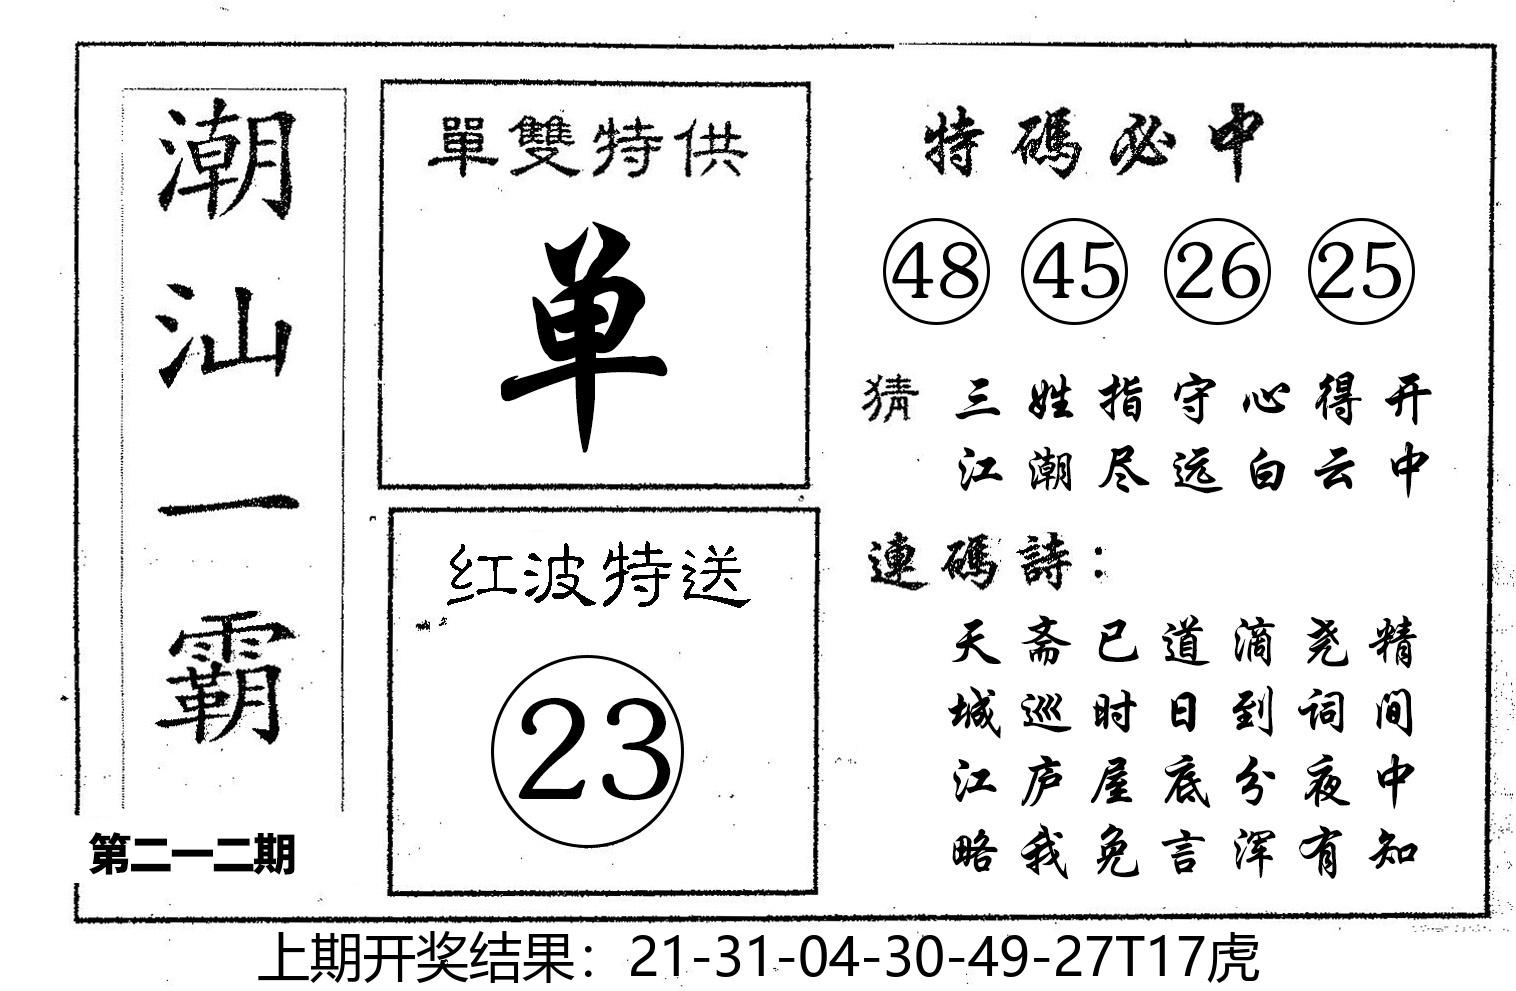 潮汕一霸
第二一二期
單雙特供
单
红波特送
23
特碼必中
48 45 26 25
猜 三姓指守心得开
江潮尽远白云中
連碼詩：
天斋已道滴尧精
城巡时日到词间
江庐屋底分夜中
略我免言浑有知
上期开奖结果：21-31-04-30-49-27T17虎